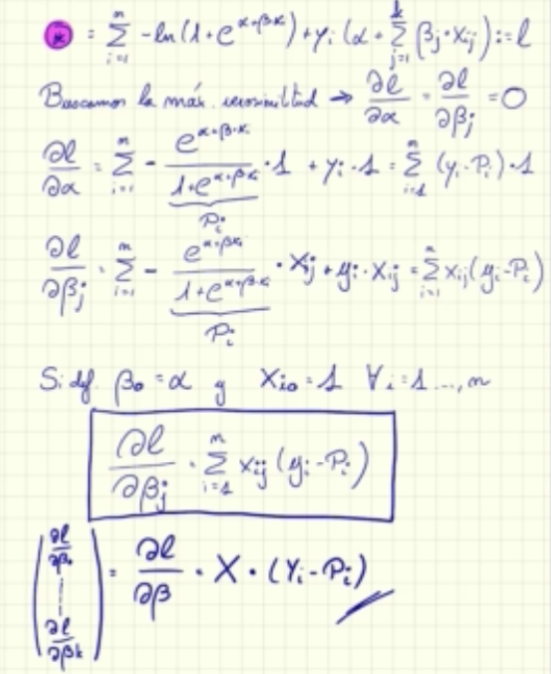 * = Σ_{i=1}^{n} -ln(1+e^{α+βxᵢ})+yᵢ(α+Σ_{j=1}^{k} βⱼ·xᵢⱼ):=l
Buscamos la máx. verosimilitud → ∂l/∂α = ∂l/∂βⱼ = 0
∂l/∂α = Σ_{i=1}^{n} - e^{α+β·xᵢ}/(1+e^{α+βxᵢ}) · 1 + yᵢ·1 = Σ_{i=1}^{n} (yᵢ-Pᵢ)·1
Pᵢ
∂l/∂βⱼ = Σ_{i=1}^{n} - e^{α+βxᵢ}/(1+e^{α+βxᵢ}) · xᵢⱼ + yᵢ·xᵢⱼ = Σ_{i=1}^{n} xᵢⱼ(yᵢ-Pᵢ)
Pᵢ
Si def. β₀=α y xᵢ₀=1 ∀ᵢ=1...,n
∂l/∂βⱼ = Σ_{i=1}^{n} xᵢⱼ(yᵢ-Pᵢ)
(∂l/∂β₀ ⋮ ∂l/∂βk) = ∂l/∂β = X·(Yᵢ-Pᵢ)